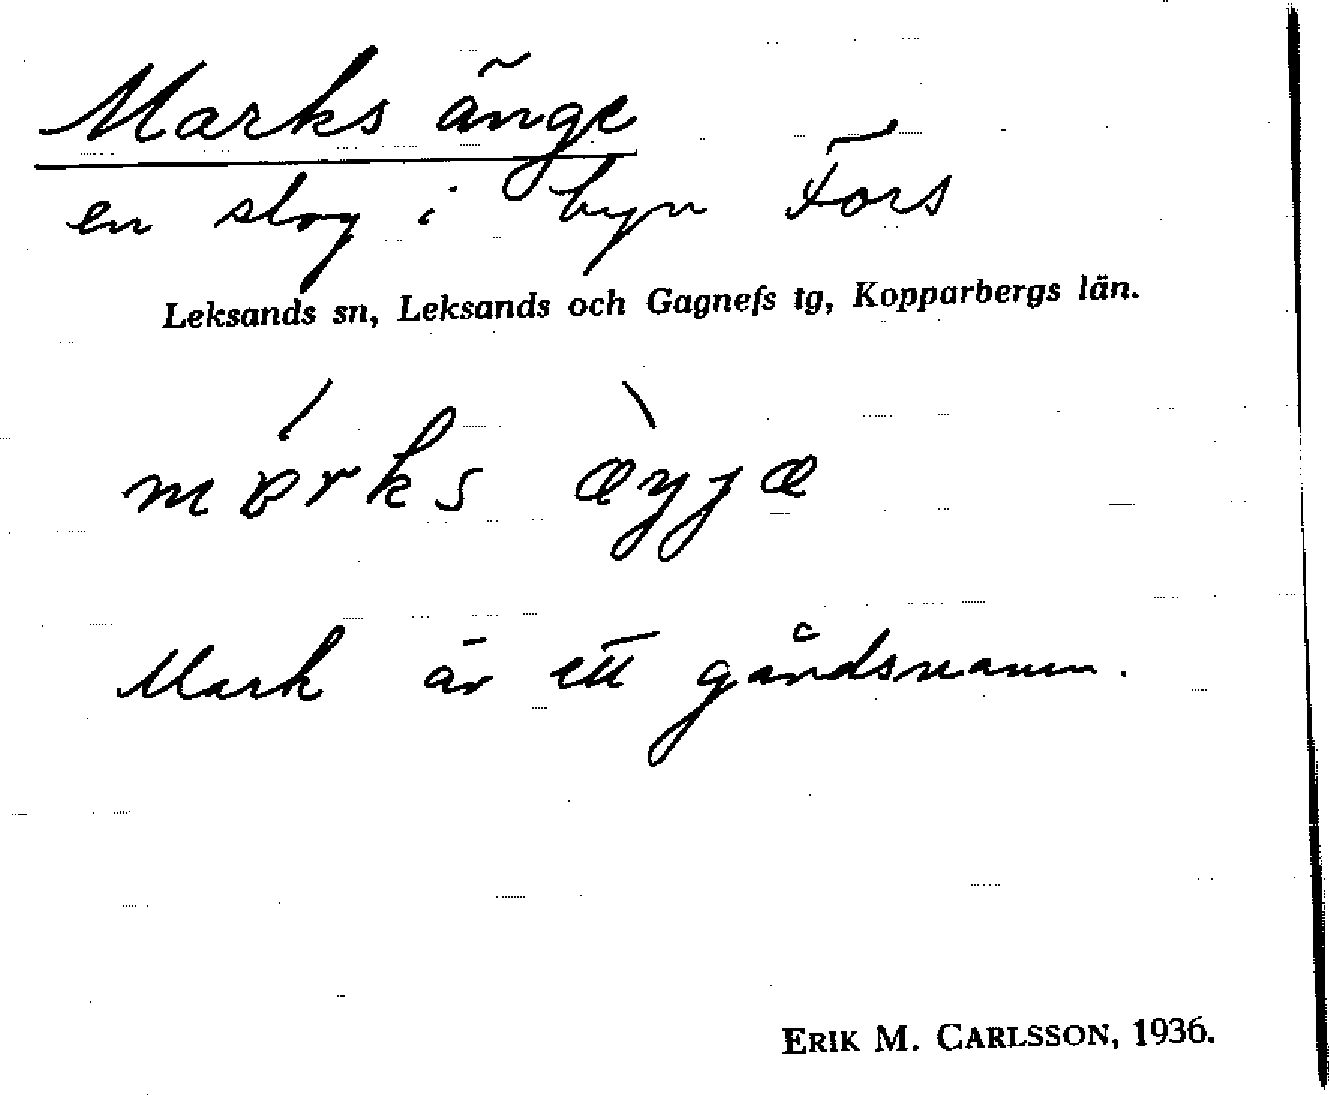 Marks änge
en slog i byn Fors
Leksands sn, Leksands och Gagnefs tg, Kopparbergs län.
Mark är ett gårdsnamn.
ERIK M. CARLSSON, 1936.